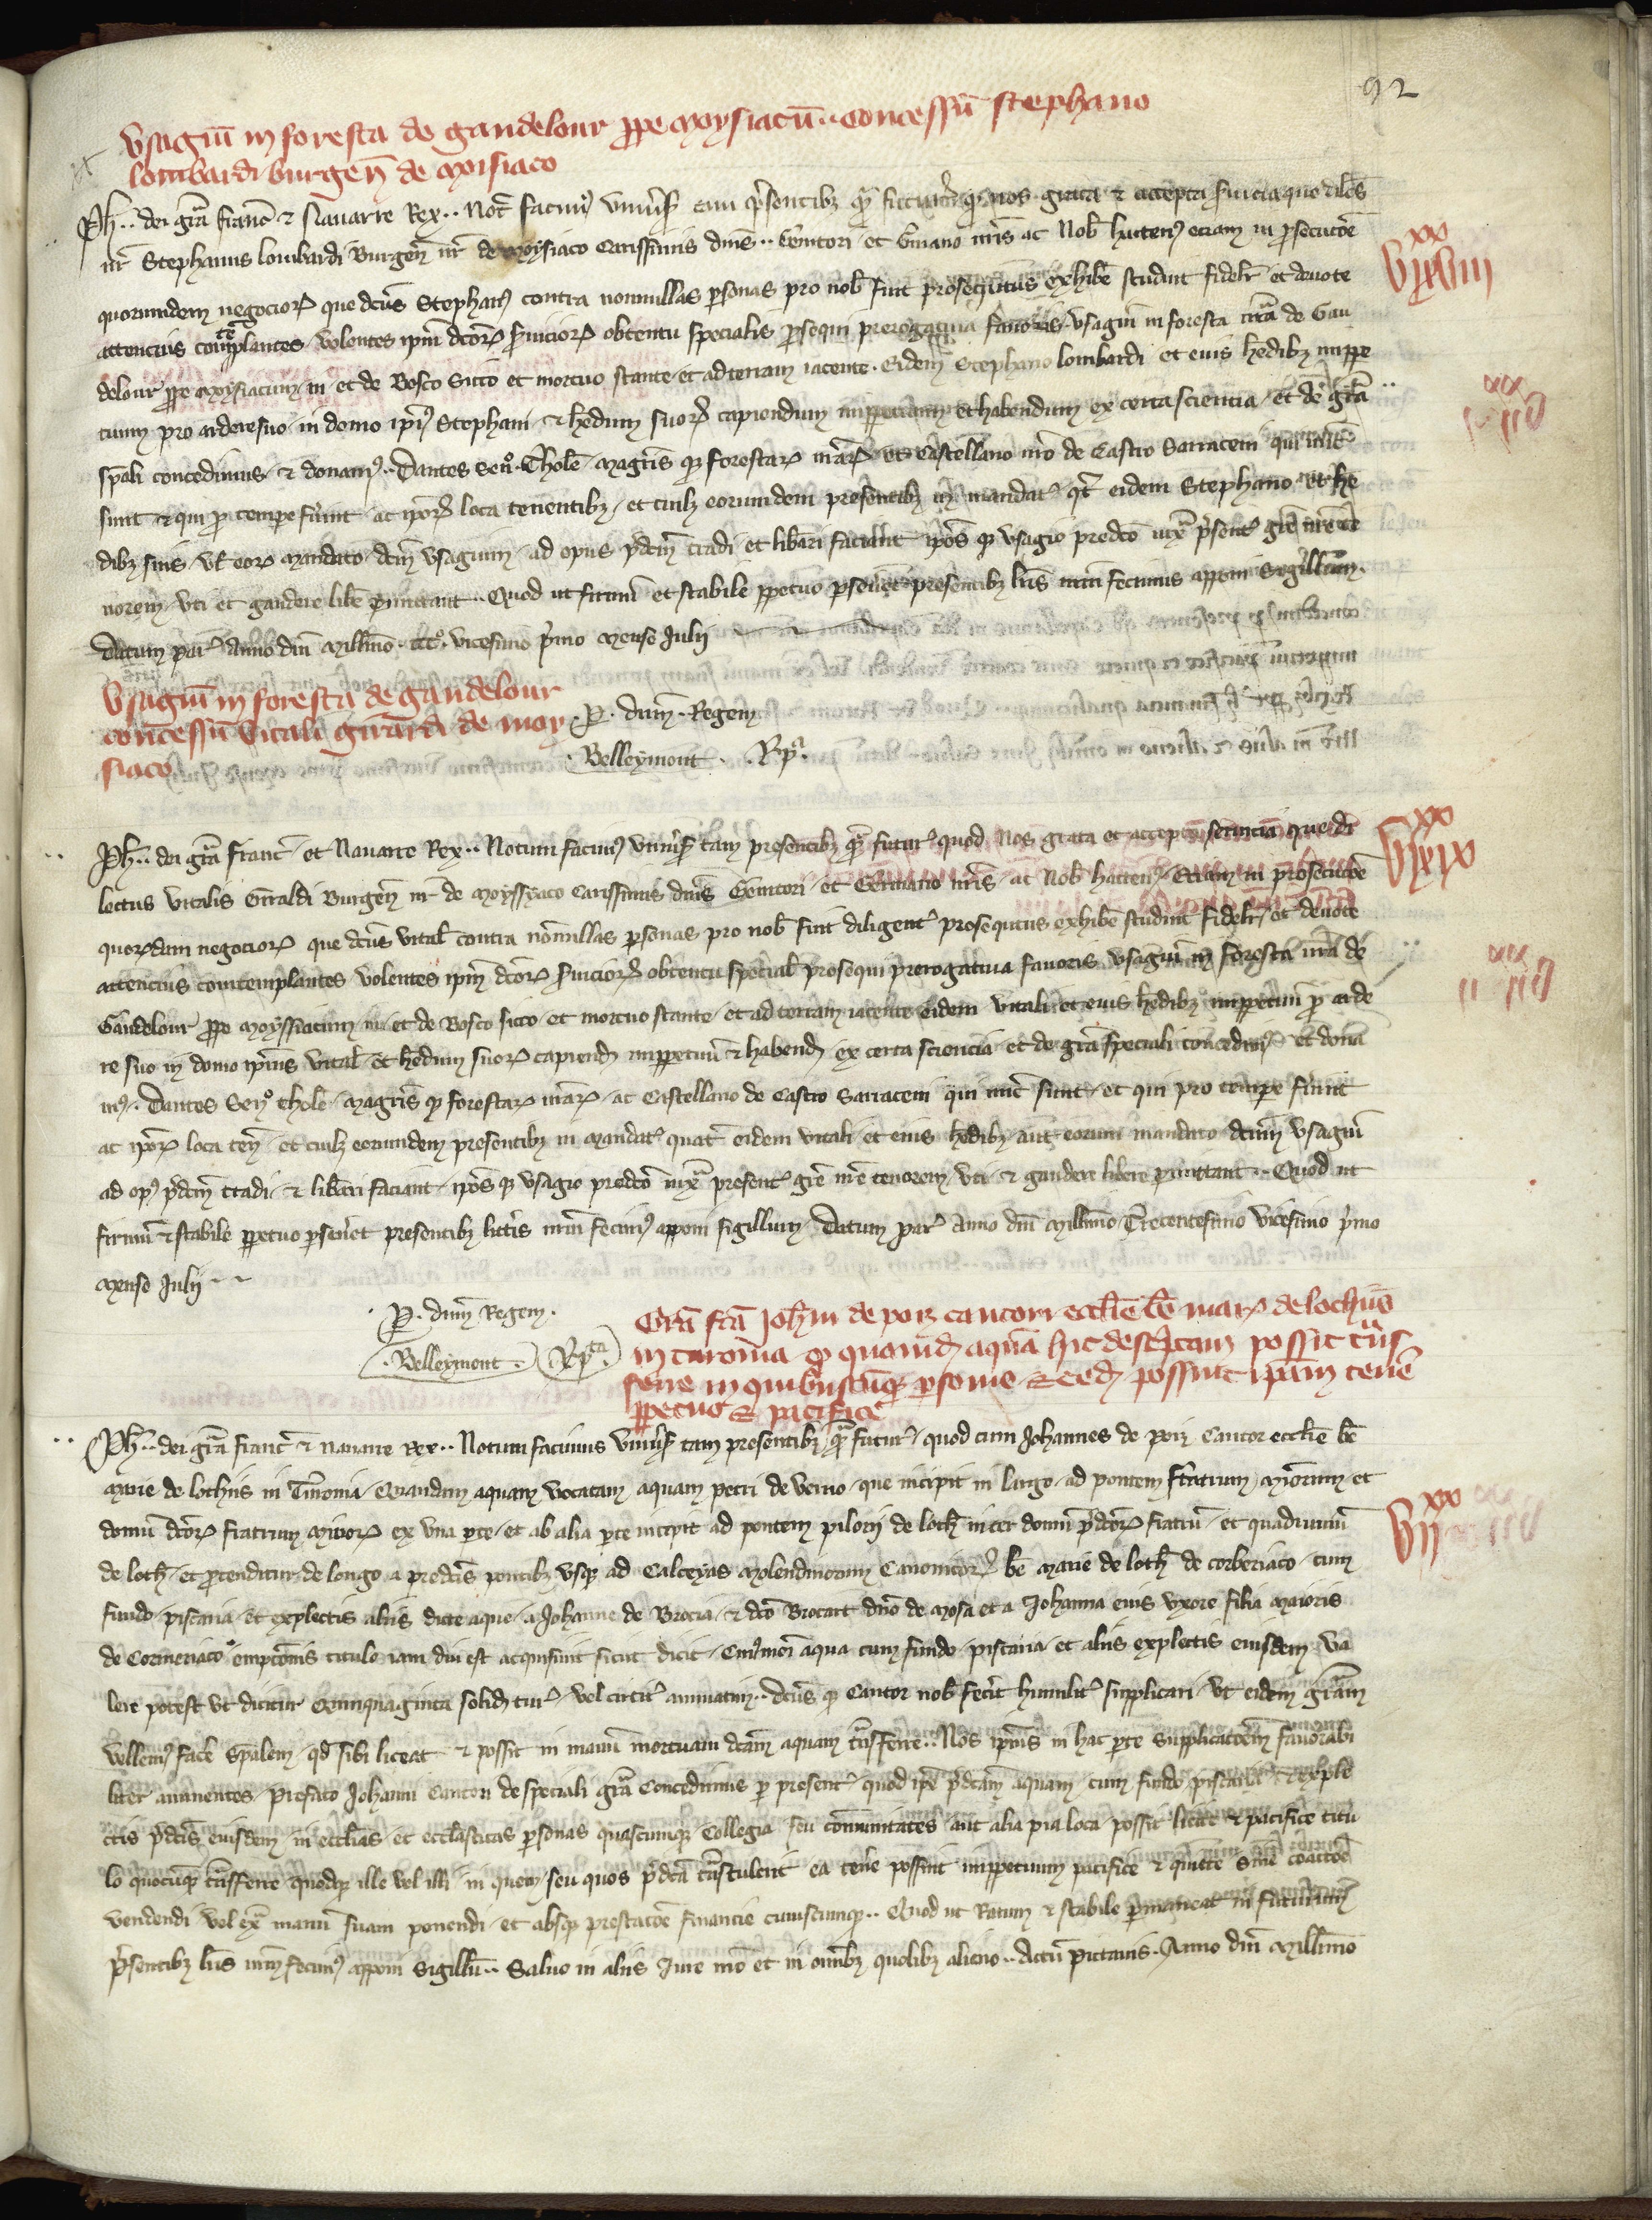 92
Usagiu in foresta de gandelour ppe moysiacu .. concessu stephano
lombardi burgen de moisiaco
Ph .. dei gra franc & Navarre Rex .. Not facim univsis tam psentibz qm futuris q nos grata & accepta servicia que dilcs
nr Stephanus lombardi Burgen nr de Moysiaco carissimis dnis .. Genitori et Gmano nris ac nob hactens etiam in psecutoe
quorumdem negocior que dcus Stephan contra nonnullas psonas pro nob fuit prosequtus exhibe studuit fidelr et devote
attencius contemplantes volentes ipm dcor svicior obtentu specialis psequi prerogativa favoris usagiu in foresta nra de Gan
delour ppe Moysiacum in et de Bosco sicco et mortuo stante et ad terram iacente eidem Stephano lombardi et eius hedibz imppe
tuum pro ardere suo in domo ipi Stephani & hedum suor capiendum imppetuum et habendum ex certa scientia et de gra
spali concedimus & donam .. Dantes Sen Thole Magris q forestar nrar et Castellano nro de Castro Sarraceni qui nunc
sunt & qui p tempe fuint ac ipor loca tenentibz et cuilz eorumdem presentibz in mandat qt eidem Stephano et he
dibz suis vl eor mandato dcm usagium ad opus pdcm tradi et libari faciant ipos q usagio predco iux psent gre nre te
norem uti et gaudere libe pmittant .. Quod ut firmu et stabile ppetuo psevet presentibz lris nrm fecimus apponi Sigillum
Datum par Anno dni Millimo ccc vicesimo pmo mense Julii
Usagiu in foresta de gandelour
concessu vitali girardi de moy
siaco
P. dnm Regem
Belleymont . Rpa.
Ph .. dei gra franc et Navarre Rex .. Notum facim univs tam presentibz qm futur quod nos grata et accepta servicia que di
lectus vitalis Giraldi Burgen nr de Moyssyaco carissimis dnis Genitori et Germano nris ac nob hacten etiam in prosecutoe
quordam negocior que dcus vital contra nonnullas psonas pro nob fuit diligent prosequtus exhibe studuit fidelr et devote
attencius contemplantes volentes ipm dcor svicior obtentu special prosequi prerogativa favoris usagiu in foresta nra de
Gandelour ppe Moyssiacum in et de Bosco sicco et mortuo stante et ad terram iacente eidem vitali et eius hedibz imppetuu p arde
re suo in domo ipius vital et hedum suor capiend imppetuu & habend ex certa sciencia et de gra speciali concedim et dona
m .. Dantes Sen thole Magris q forestar nrar ac Castellano de Castro Sarraceni qui nuc sunt et qui pro tempe fuint
ac ipor loca ten et cuilz eorumdem presentibz in mandat quat eidem vitali et eius hedibz aut eorum mandato dcum usagiu
ad op pdcm tradi & liberi faciant ipos q usagio predco iux present gre nre tenorem uti & gaudere libere pmittant .. Quod ut
firmu & stabile ppetuo psevet presentibz litteris nrm fecim apponi sigillum Datum par Anno dni Millimo Trecentesimo vicesimo pmo
mense Julii
P. dnm Regem.
Belleymont. Rpta
Gra fca Johni de poiz cantori ecclie be mar de lochiis
in turonia q quamd aquam hic desciptam possit tus
ferre in quibuscuq psonis & ecd possint ipam tene
ppetuo & pacifice
Ph .. dei gra franc & navarre Rex .. Notum facimus univs tam presentibz qm futur quod cum Johannes de poiz Cantor ecclie be
Marie de lochiis in Turonia Quandam aquam vocatam aquam petri de verno que incipit in largo ad pontem fratrum Minorum et
domu dcor fratrum Minor ex una pte et ab alia pte incipit ad pontem pilorii de loch inter domu pdcor fratru et quadruvium
de loch et ptenditur de longo a predcis pontibz usq ad Calceyas Molendinorum Canonicor be Marie de loch de corberiaco cum
fundo piscaria et explectis aliis dicte aque a Johanne de Brocia & dco Brocart dno de Mosa et a Johanna eius uxore filia Maioris
de Cormeriaco empcois titulo iam diu est acquisiuit sicut dicit Cuimoi aqua cum fundo piscaria et aliis explectis eiusdem va
lere potest ut dicitur Quinquaginta solid tur vel circit annuatim .. dcus q Cantor nob fecit humilit supplicari ut eidem gram
vellem face spalem qd sibi liceat & possit in manu mortuam dcam aquam tnsferre .. Nos ipius in hac pte supplicacoem favorabi
liter annuentes Prefato Johanni Cantori de speciali gra Concedimus p present quod ipe pdcam aquam cum fundo piscaria & exple
ctis pdcis eiusdem in ecclias et ecclasticas psonas quascumq Collegia seu comunitates aut alia pia loca possit licit & pacifice titu
lo quocuq tnsferre quodq ille vel illi in quem seu quos pdca tnstulerit ea tene possint imppetuum pacifice & quiete sine coactoe
vendendi vel ex manu suam ponendi et absq prestacoe financie cuiuscumq .. Quod ut Ratum & stabile pmaneat in futurum
psentibz lris nrm fecim apponi Sigillu .. Salvo in aliis Iure nro et in omibz quolibz alieno .. Actu Pictavis Anno dni Millimo